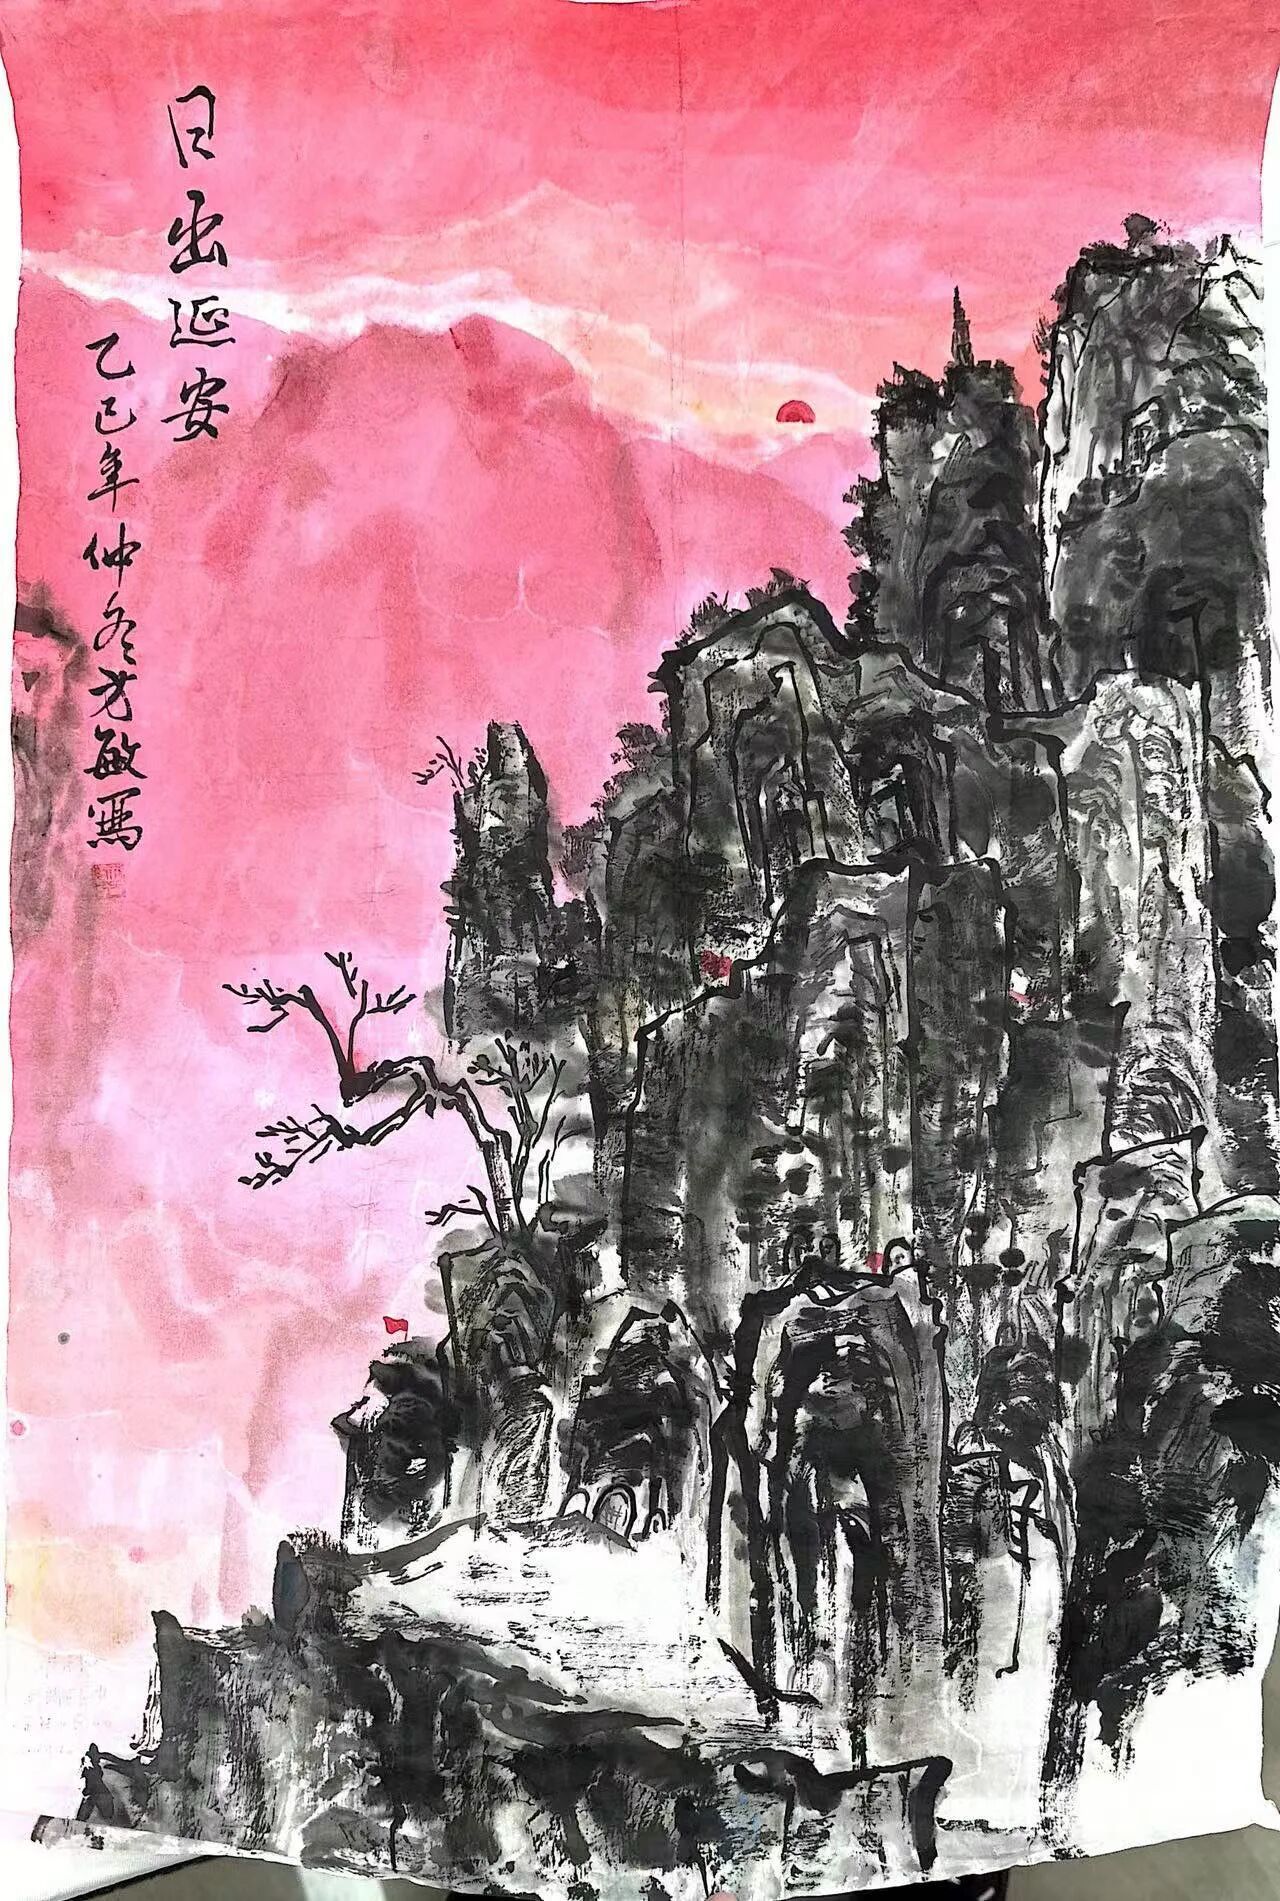 日出延安
乙巳年仲冬方敏写